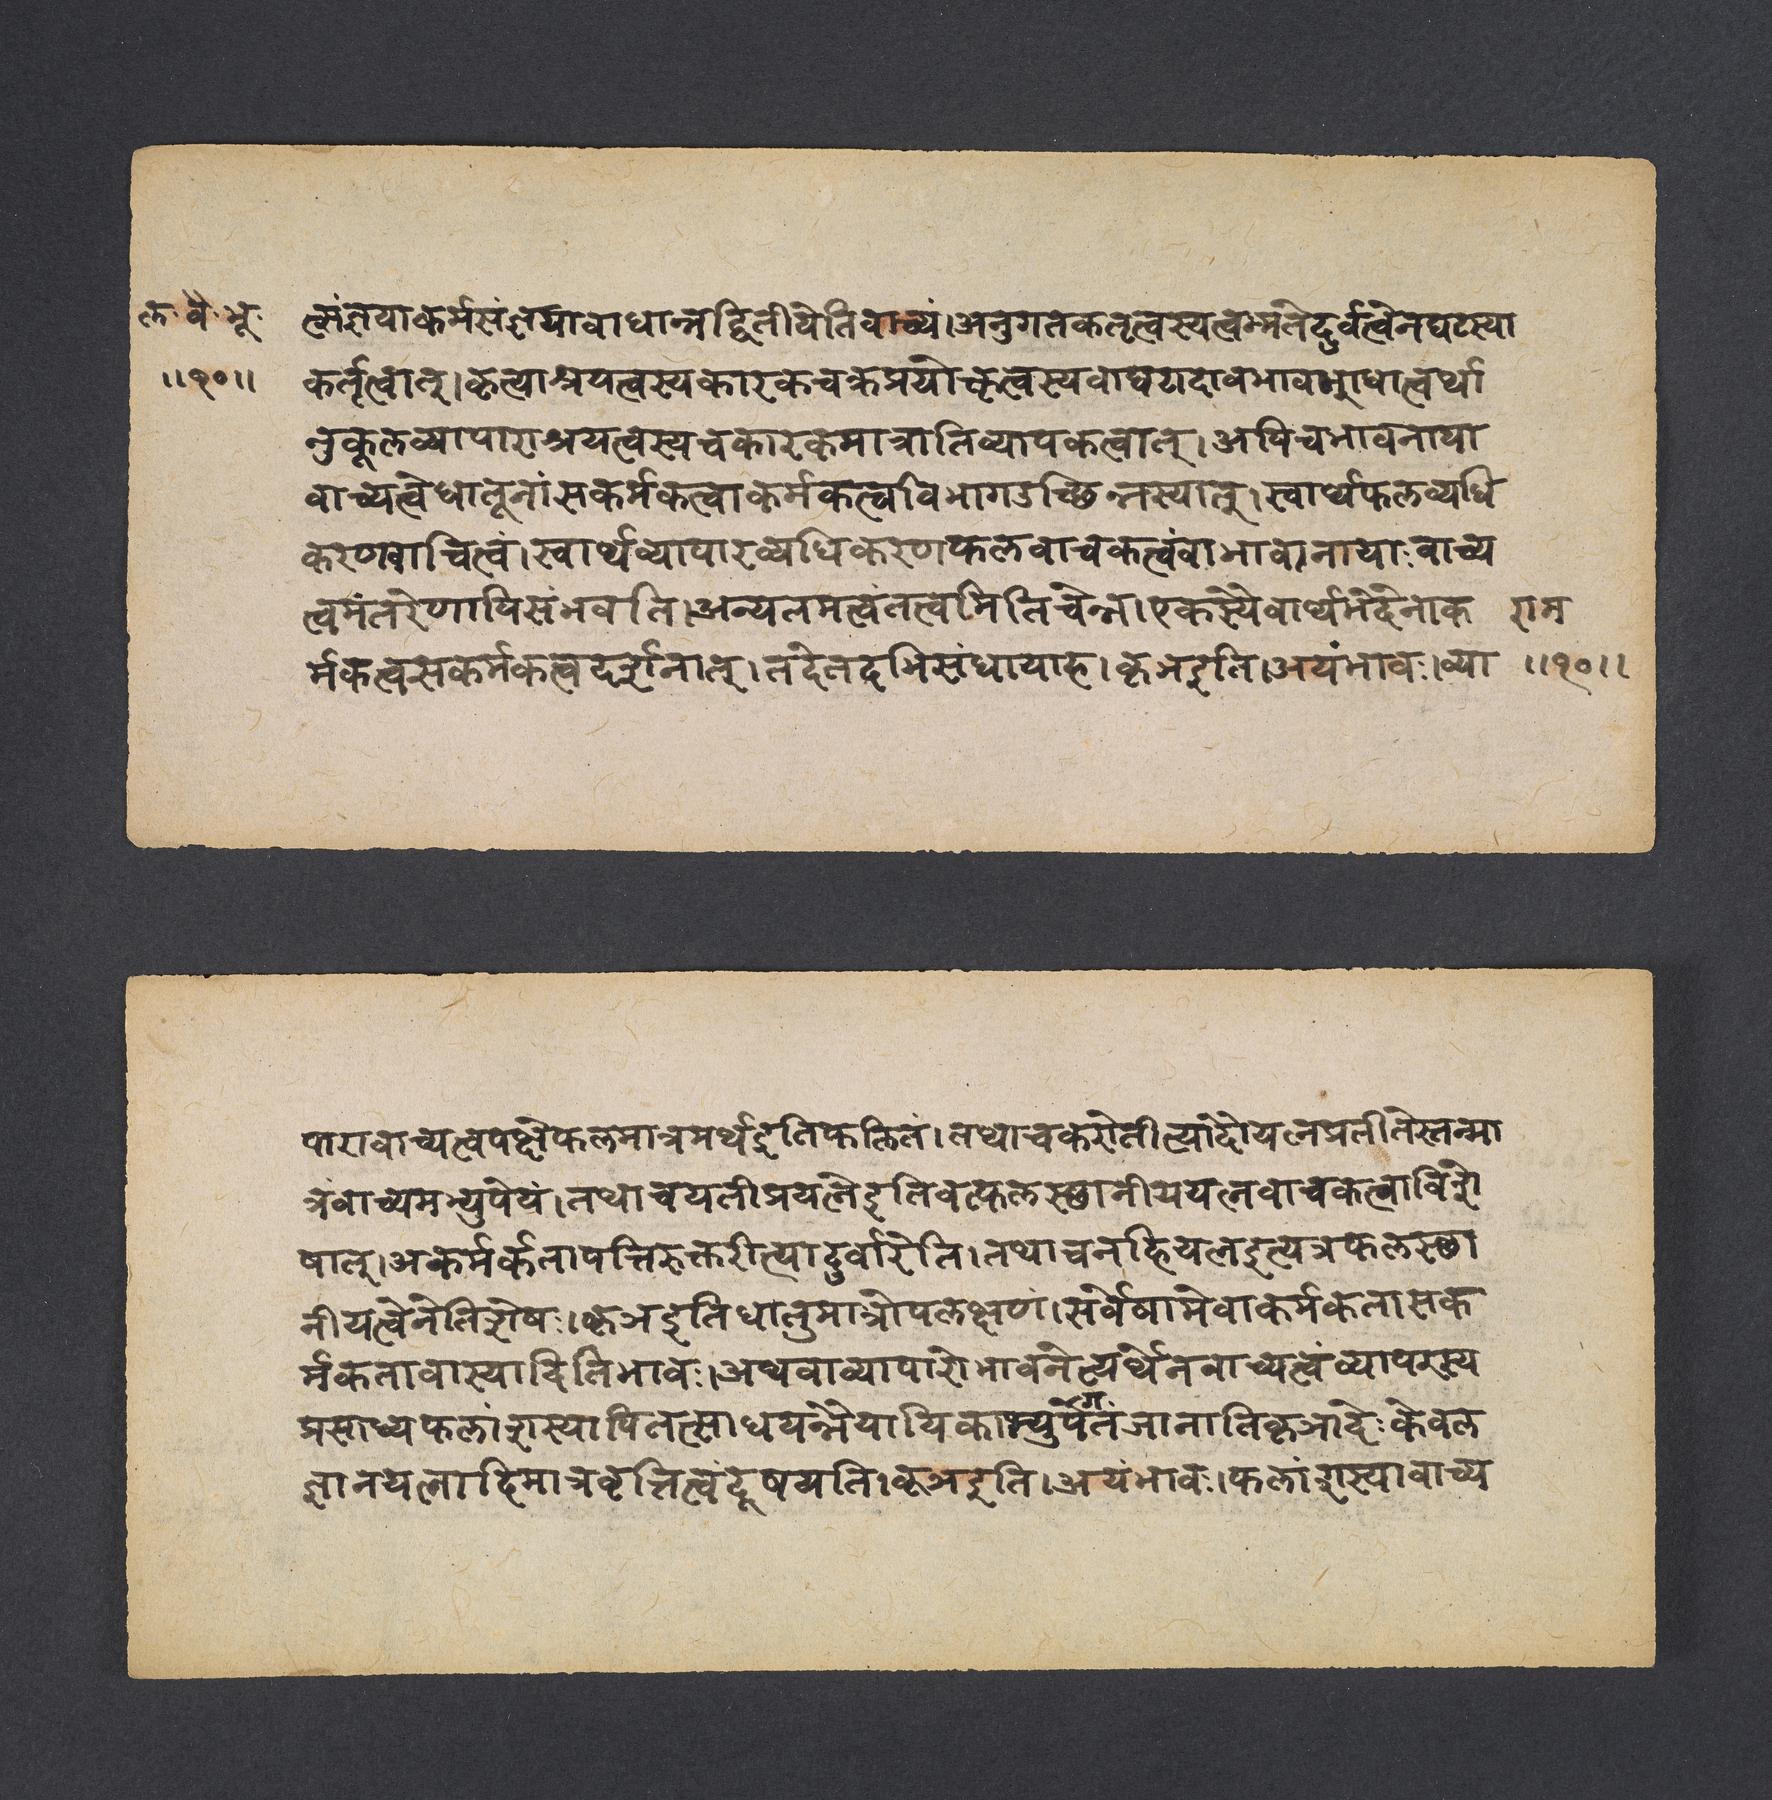 ल॰ वै॰ भू॰
॥१०॥
त्संज्ञयाकर्मसंज्ञयावाधान्नद्वितीयेतिवाच्यं।अनुगतकतृत्वस्यत्वन्मतेदुर्वत्वेनघटस्या
कर्तृत्वात्।कृत्याश्रयत्वस्यकारकचक्रप्रयोक्तृत्वस्यवाघटादावभावाभुाधात्वर्था
नुकूलव्यापाराश्रयत्वस्यचकारकमात्रातिव्यापकत्वात्।अपिचभावनाया
वाच्यत्वेधातूनांसकर्मकत्वाकर्मकत्वविभागउच्छिन्नस्यात्।स्वार्थफलव्यधि
करणवाचित्वं।स्वार्थव्यापारव्यधिकरणफलवाचकत्वंवाभावानायाःवाच्य
त्वमंतरेणापिसंभवति।अन्यतमत्वंतत्वमितिचेन्न।एकस्यैवार्थभेदेनाक
र्मकत्वसकर्मकत्वदर्शनात्।तदेतदभिसंधायाह।कृञइति।अयंभावः।व्या
राम
॥१०॥
पारावाच्यत्वपक्षेफलमात्रमर्थइतिफलितं।तथाचकरोतीत्यादोयत्नप्रतीतेस्तन्मा
त्रंवाच्यमभ्युपेयं।तथाचयतीप्रयत्नेइतिवत्फलस्छानीययत्नवाचकत्वाविशे
षात्।अकर्मर्कतापत्तिरुक्तरीत्यादुर्वारेति।तथाचनहियत्नइत्यत्रफलस्छा
नीयत्वेनेतिशेषः।कृञइतिधातुमात्रोपलक्षणं।सर्वेषामेवाकर्मकतासक
र्मकतावास्यादितिभावः।अथवाव्यापारोभावनेत्यर्थेनवाच्यत्वंव्यापरस्य
प्रसाध्यफलांशस्यापितत्साधयन्नैयायिकाभ्युपेतंजानातिकृञादेःकेवल
ज्ञानयत्नादिमात्रवृत्तित्वंदूषयति।कृञइति।अयंभावः।फलांशस्यावाच्य